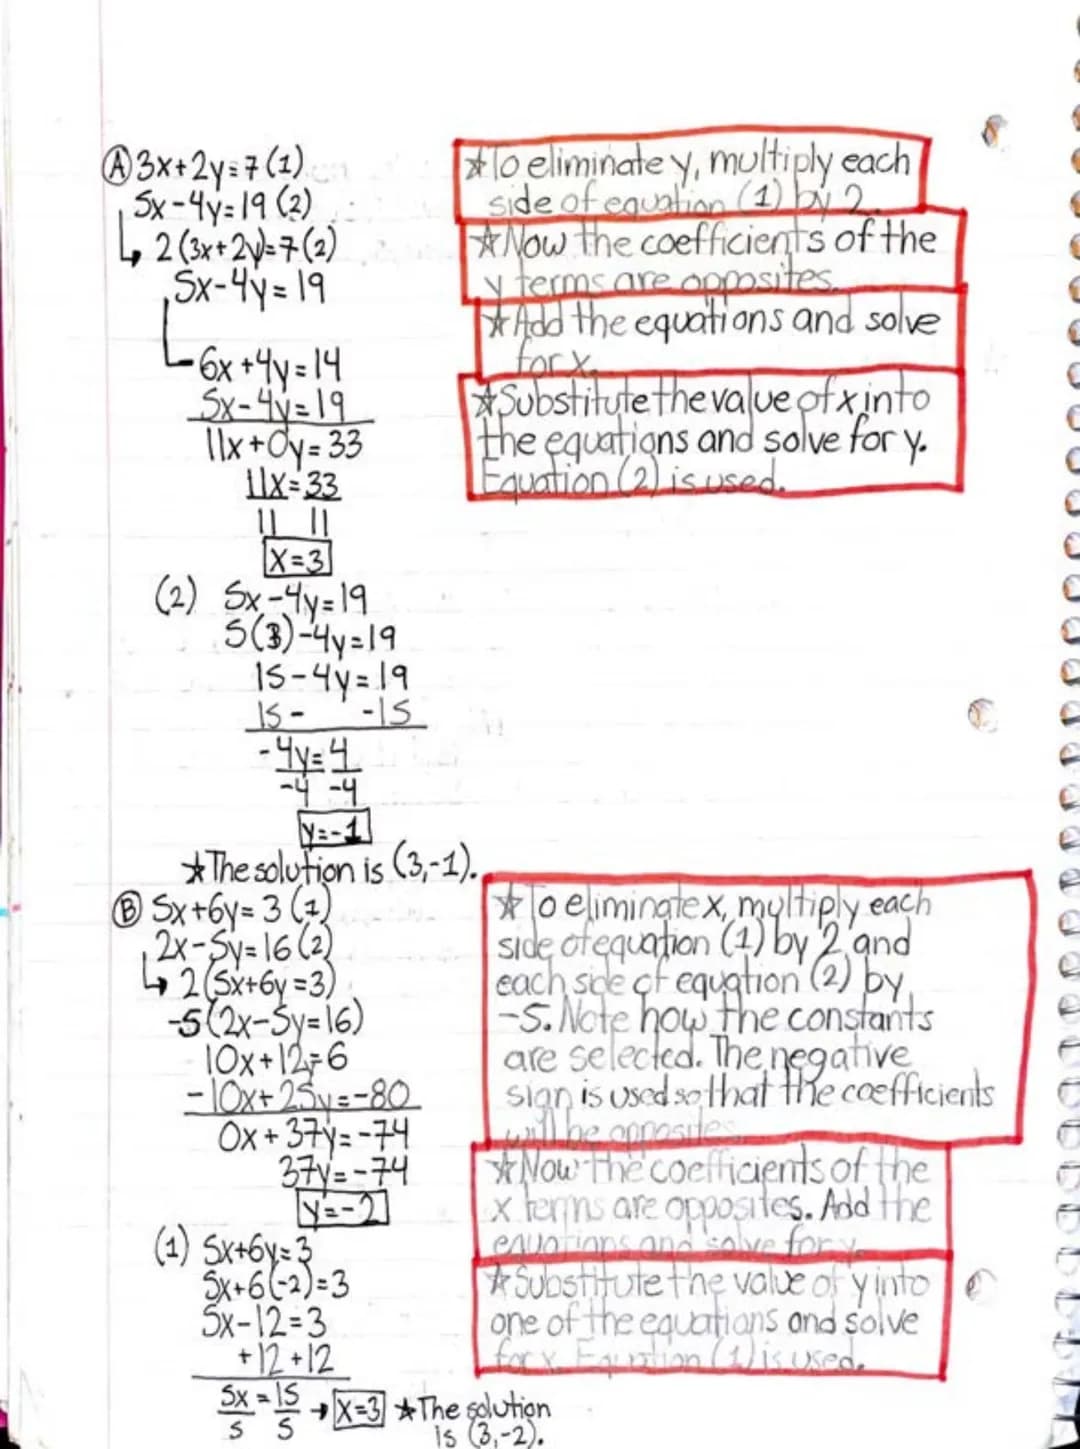 Ⓐ 3x+2y=7 (1)
5x-4y=19 (2)
↳ 2(3x+2y)=7(2)
5x-4y=19
6x+4y=14
5x-4y=19
11x+0y=33
11x=33
11 11
x=3
(2) 5x-4y=19
5(3)-4y=19
15-4y=19
15- -15
-4y=4
-4 -4
y=-1
★The solution is (3,-1).
★To eliminate y, multiply each
side of equation (1) by 2.
★Now the coefficients of the
y terms are opposites.
★Add the equations and solve
for x.
★Substitute the value of x into
the equations and solve for y.
Equation (2) is used.
Ⓑ 5x+6y=3 (1)
2x-5y=16 (2)
↳ 2(5x+6y=3)
-5(2x-5y=16)
10x+12=6
-10x+25y=-80
0x+37y=-74
37y=-74
y=-2
(1) 5x+6y=3
5x+6(-2)=3
5x-12=3
+12 +12
5x=15 → x=3 ★The solution
5 5 is (3,-2).
★To eliminate x, multiply each
side of equation (1) by 2 and
each side of equation (2) by
-5. Note how the constants
are selected. The negative
sign is used so that the coefficients
will be opposites.
★Now the coefficients of the
x terms are opposites. Add the
equations and solve for y.
★Substitute the value of y into
one of the equations and solve
for x. Equation (1) is used.